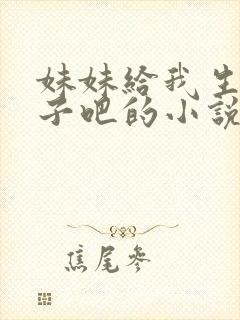 妹妹給我生
子吧的小說
焦尾參